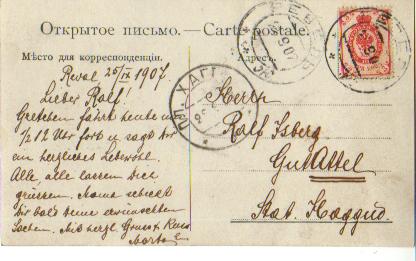 Открытое письмо. — Carte postale.
Мѣсто для корреспонденціи.
Адресъ.
Reval 25/IX 1907.
Lieber Ralf!
Gretchen fährt heute um
1/2 12 Uhr fort u. sagt Dir
ein herzliches Lebewohl.
Alle, alle lassen Dich
grüssen. Mama schickt
Dir bald Deine erwünschten
Sachen. Mit herzl. Gruss u. Kuss
Herrn
Ralf Isberg
Gut Attel
Stat. Haggud.